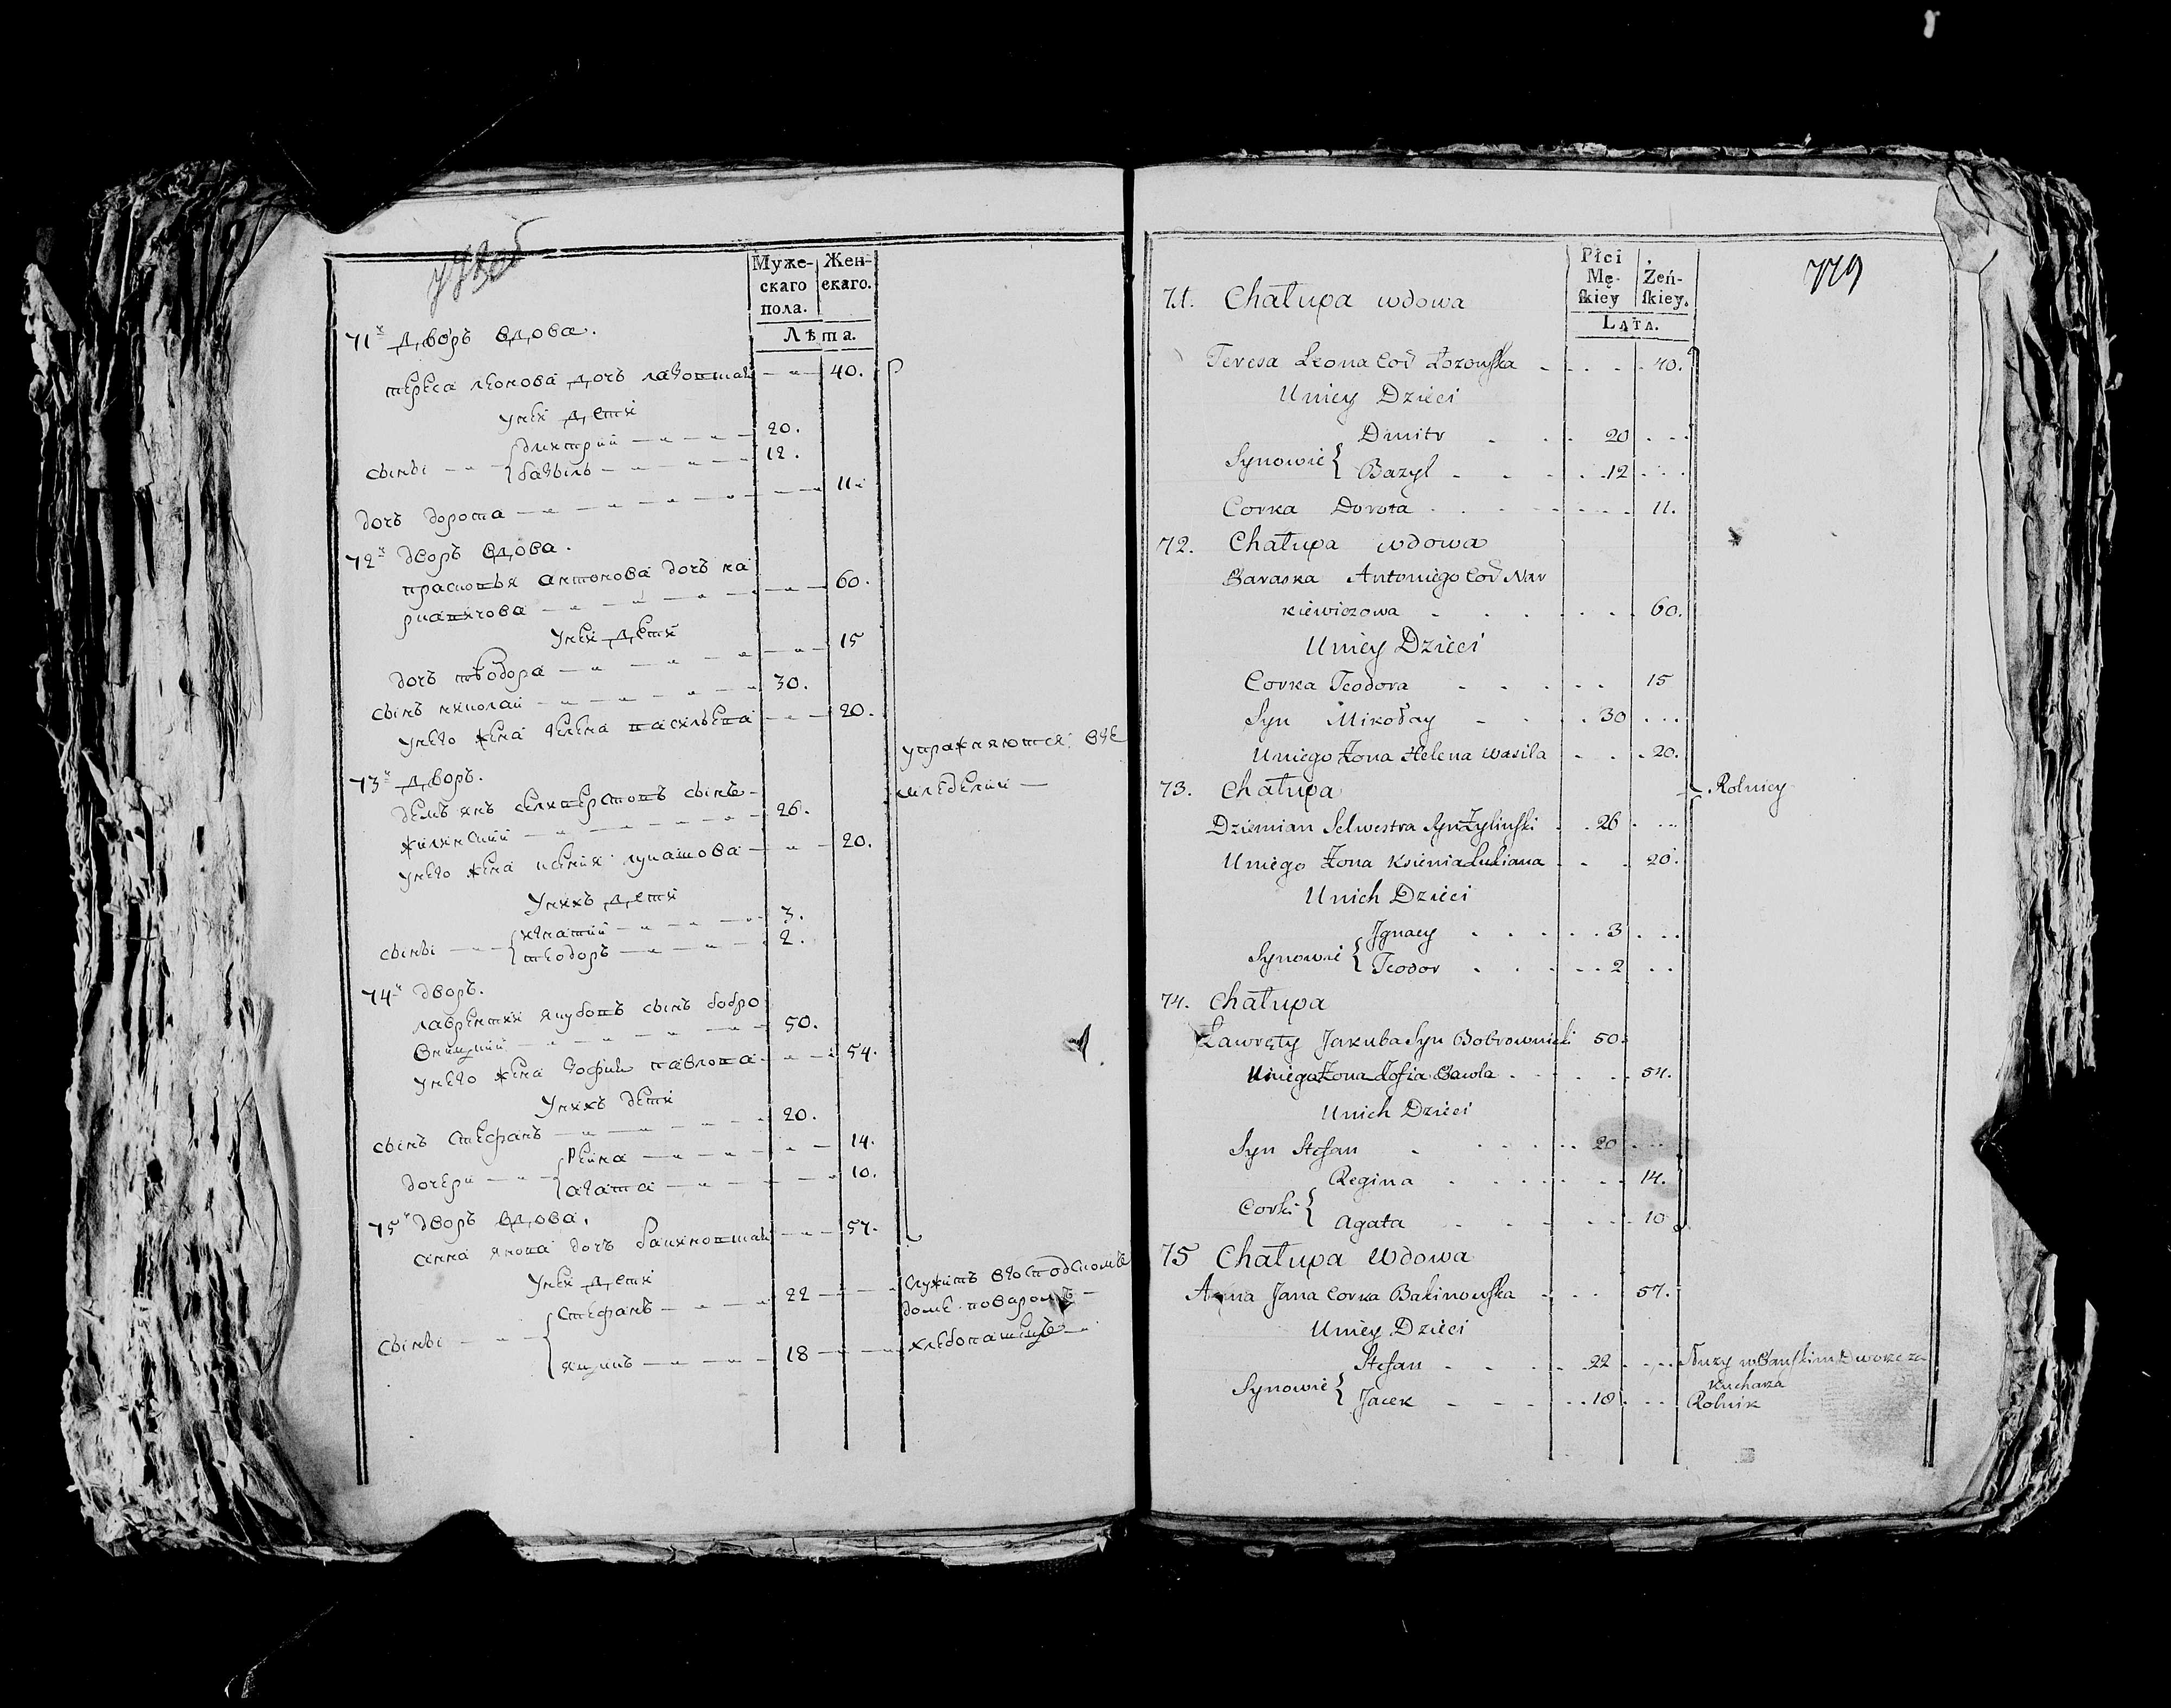 Муже-
скаго
пола.
Жен-
скаго.
Лѣта.
71й дворъ вдова.
тереса леонова дочь 40.
унеи дети
сыны дмитрий 20.
базыль 12.
дочь дорота 11.
72й дворъ вдова.
прасковья антонова дочь на
60.
унеи дети
дочь теодора 15
сынъ николай 30.
унего жена гелена василева 20.
73й дворъ.
демьянъ селивестровъ сынъ
жилинский 26.
унего жена ксения лукашова 20.
унихъ дети
сыны игнатий 3.
теодоръ 2.
упражняются вхле
74й дворъ.
лаврентий якубовъ сынъ бобро
вницкий 50.
унего жена зофия павлова 54.
унихъ дети
сынъ стефанъ 20.
14.
дочери агата 10.
75й дворъ вдова.
анна янова дочь бакиновская 57.
унеи дети
сыны стефанъ 22 служитъ вгосподскомъ
доме поваромъ
яцикъ 18 хлебопашецъ
779
Płci
Mę-
skiey
Żeń-
skiey.
Lata.
71. Chałupa wdowa
Teresa Leona Cor Łozowska 40.
Uniey Dzieci
Dmitr 20
Synowie { Bazyl 12
Corka Dorota 11.
72. Chałupa wdowa
Paraska Antoniego Cor Nar
kiewiczowa 60.
Uniey Dzieci
Corka Teodora 15
Syn Mikołay 30
Uniego Żona Helena Wasila 20.
73. Chałupa Rolnicy
Dziemian Selwestra Syn Żylinski 26
Uniego Żona Ksienia Lukiana 20.
Unich Dzieci
Jgnacy 3
Synowie { Teodor 2
74. Chałupa
Ławręty Jakuba Syn Bobrownicki 50.
Uniego Żona Zofia Pawla 54.
Unich Dzieci
Syn Stefan 20
Regina 14.
Corki { Agata 10
75 Chałupa Wdowa
Anna Jana Corka Bakinowska 57.
Uniey Dzieci
Stefan 22 Służy w Pańskim Dworze za
kucharza
Synowie { Jacek 18 Rolnik